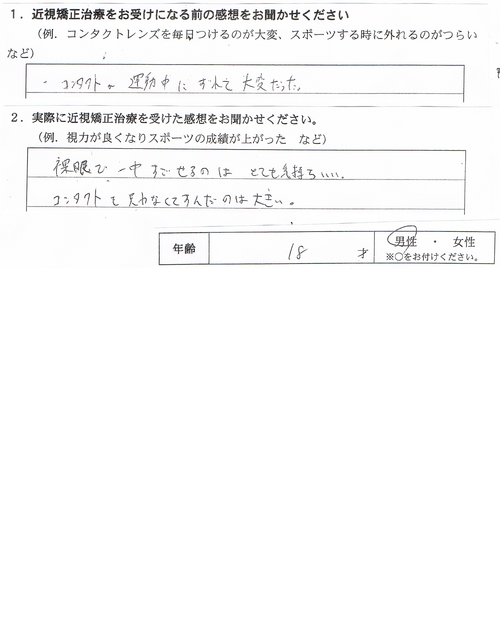 １．近視矯正治療をお受けになる前の感想をお聞かせください
（例．コンタクトレンズを毎日つけるのが大変、スポーツする時に外れるのがつらい
など）
・コンタクトが運動中にずれて大変だった。
２．実際に近視矯正治療を受けた感想をお聞かせください。
（例．視力が良くなりスポーツの成績が上がった　など）
裸眼で一中すごせるのは とても気持ちいい。
コンタクトを 買わなくてすんだのは大きい。
年齢 18 才 男性 ・ 女性
※○をお付けください。